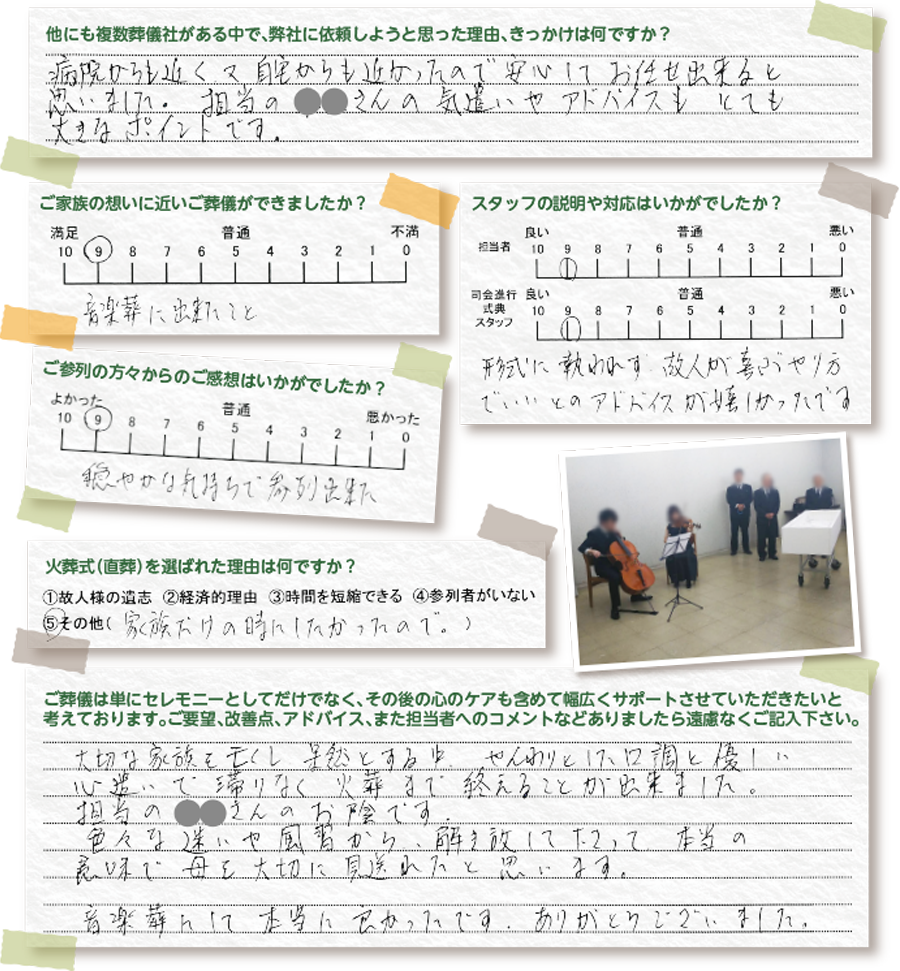 他にも複数葬儀社がある中で、弊社に依頼しようと思った理由、きっかけは何ですか？
病院からも近く又自宅からも近かったので安心してお任せ出来ると
思いました。担当の●●さんの気遣いやアドバイスもとても
大きなポイントです。
ご家族の想いに近いご葬儀ができましたか？
満足 普通 不満
10 9 8 7 6 5 4 3 2 1 0
音楽葬に出来たこと
スタッフの説明や対応はいかがでしたか？
良い 普通 悪い
担当者 10 9 8 7 6 5 4 3 2 1 0
司会進行 良い 普通 悪い
式典 10 9 8 7 6 5 4 3 2 1 0
スタッフ
形式に執われず、故人が喜ぶやり方
でいいとのアドバイスが嬉しかったです
ご参列の方々からのご感想はいかがでしたか？
よかった 普通 悪かった
10 9 8 7 6 5 4 3 2 1 0
穏やかな気持ちで参列出来た
火葬式（直葬）を選ばれた理由は何ですか？
①故人様の遺志 ②経済的理由 ③時間を短縮できる ④参列者がいない
⑤その他（家族だけの時にしたかったので。）
ご葬儀は単にセレモニーとしてだけでなく、その後の心のケアも含めて幅広くサポートさせていただきたいと
考えております。ご要望、改善点、アドバイス、また担当者へのコメントなどありましたら遠慮なくご記入下さい。
大切な家族を亡くし呆然とする中、やんわりとした口調と優しい
心遣いで滞りなく火葬まで終えることが出来ました。
担当の●●さんのお陰です。
色々な迷いや風習から、解き放して下さって本当の
意味で母を大切に見送れたと思います。
音楽葬にして本当に良かったです。ありがとうございました。